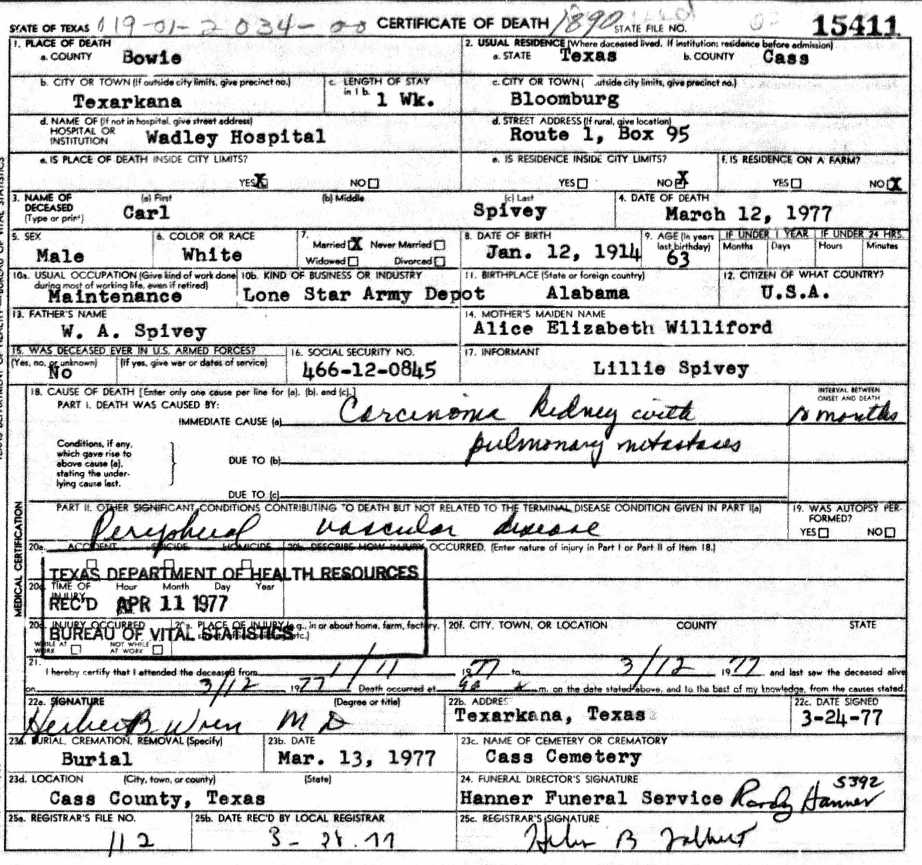 STATE OF TEXAS 119-01-2034-00 CERTIFICATE OF DEATH 1890 STATE FILE NO. 15411
1. PLACE OF DEATH
a. COUNTY Bowie
2. USUAL RESIDENCE (Where deceased lived. If institution: residence before admission)
a. STATE Texas b. COUNTY Cass
b. CITY OR TOWN (If outside city limits, give precinct no.)
Texarkana
c. LENGTH OF STAY in 1 b.
1 Wk.
c. CITY OR TOWN ( outside city limits, give precinct no.)
Bloomburg
d. NAME OF (If not in hospital, give street address)
HOSPITAL OR
INSTITUTION Wadley Hospital
d. STREET ADDRESS (If rural, give location)
Route 1, Box 95
e. IS PLACE OF DEATH INSIDE CITY LIMITS?
YES X NO
e. IS RESIDENCE INSIDE CITY LIMITS?
YES NO X
f. IS RESIDENCE ON A FARM?
YES NO X
3. NAME OF
DECEASED
(Type or print)
(a) First
Carl
(b) Middle
(c) Last
Spivey
4. DATE OF DEATH
March 12, 1977
5. SEX
Male
6. COLOR OR RACE
White
7.
Married X Never Married
Widowed Divorced
8. DATE OF BIRTH
Jan. 12, 1914
9. AGE (In years last birthday)
63
IF UNDER 1 YEAR
Months Days
IF UNDER 24 HRS.
Hours Minutes
10a. USUAL OCCUPATION (Give kind of work done during most of working life, even if retired)
Maintenance
10b. KIND OF BUSINESS OR INDUSTRY
Lone Star Army Depot
11. BIRTHPLACE (State or foreign country)
Alabama
12. CITIZEN OF WHAT COUNTRY?
U.S.A.
13. FATHER'S NAME
W. A. Spivey
14. MOTHER'S MAIDEN NAME
Alice Elizabeth Williford
15. WAS DECEASED EVER IN U.S. ARMED FORCES?
(Yes, no, or unknown) (If yes, give war or dates of service)
No
16. SOCIAL SECURITY NO.
466-12-0845
17. INFORMANT
Lillie Spivey
MEDICAL CERTIFICATION
18. CAUSE OF DEATH [Enter only one cause per line for (a), (b), and (c).]
PART I. DEATH WAS CAUSED BY:
IMMEDIATE CAUSE (a) Carcinoma Kidney with
pulmonary metastases
INTERVAL BETWEEN
ONSET AND DEATH
10 months
Conditions, if any,
which gave rise to
above cause (a),
stating the under-
lying cause last.
DUE TO (b)
DUE TO (c)
PART II. OTHER SIGNIFICANT CONDITIONS CONTRIBUTING TO DEATH BUT NOT RELATED TO THE TERMINAL DISEASE CONDITION GIVEN IN PART I(a)
Peripheral vascular disease
19. WAS AUTOPSY PER-
FORMED?
YES NO
20a. ACCIDENT SUICIDE HOMICIDE
20b. DESCRIBE HOW INJURY OCCURRED. (Enter nature of injury in Part I or Part II of Item 18.)
TEXAS DEPARTMENT OF HEALTH RESOURCES
TIME OF INJURY Hour Month Day Year
REC'D APR 11 1977
20d. INJURY OCCURRED
WHILE AT WORK NOT WHILE AT WORK
PLACE OF INJURY (e.g., in or about home, farm, factory,
BUREAU OF VITAL STATISTICS
20f. CITY, TOWN, OR LOCATION COUNTY STATE
21.
I hereby certify that I attended the deceased from 1/11 1977 to 3/12 1977 and last saw the deceased alive
on 3/12 1977 Death occurred at m. on the date stated above, and to the best of my knowledge, from the causes stated.
22a. SIGNATURE (Degree or title)
Herbert B Wren M D
22b. ADDRES
Texarkana, Texas
22c. DATE SIGNED
3-24-77
23a. BURIAL, CREMATION, REMOVAL (Specify)
Burial
23b. DATE
Mar. 13, 1977
23c. NAME OF CEMETERY OR CREMATORY
Cass Cemetery
23d. LOCATION (City, town, or county) (State)
Cass County, Texas
24. FUNERAL DIRECTOR'S SIGNATURE
Hanner Funeral Service Randy Hanner 5392
25a. REGISTRAR'S FILE NO.
112
25b. DATE REC'D BY LOCAL REGISTRAR
3-28-77
25c. REGISTRAR'S SIGNATURE
Helen B Talbert